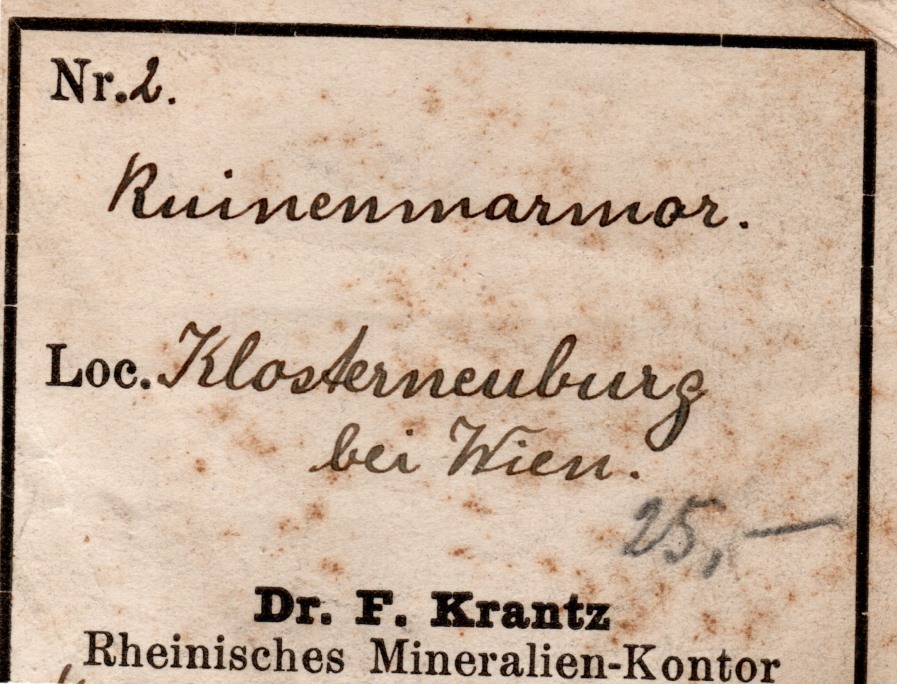 Nr. 2.
Ruinenmarmor.
Loc. Klosterneuburg
bei Wien.
25,—
Dr. F. Krantz
Rheinisches Mineralien-Kontor